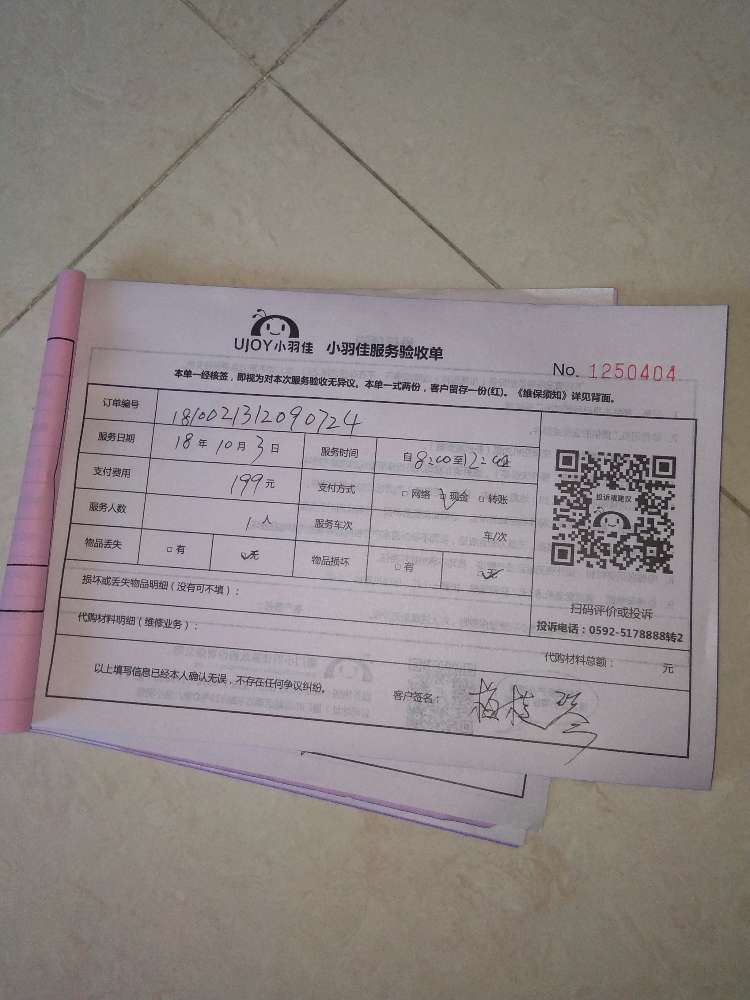 UJOY小羽佳 小羽佳服务验收单
No. 1250404
本单一经核签，即视为对本次服务验收无异议。本单一式两份，客户留存一份(红)。《维保须知》详见背面。
订单编号 1810021312090724
服务日期 18年10月3日 服务时间 自8:00至12:00
支付费用 199元 支付方式 □网络 ☑现金 □转账
服务人数 1人 服务车次 车/次
物品丢失 □有 ☑无 物品损坏 □有 ☑无
投诉或建议
扫码评价或投诉
投诉电话：0592-5178888转2
损坏或丢失物品明细（没有可不填）：
代购材料明细（维修业务）：
代购材料总额： 元
以上填写信息已经本人确认无误，不存在任何争议纠纷。 客户签名：